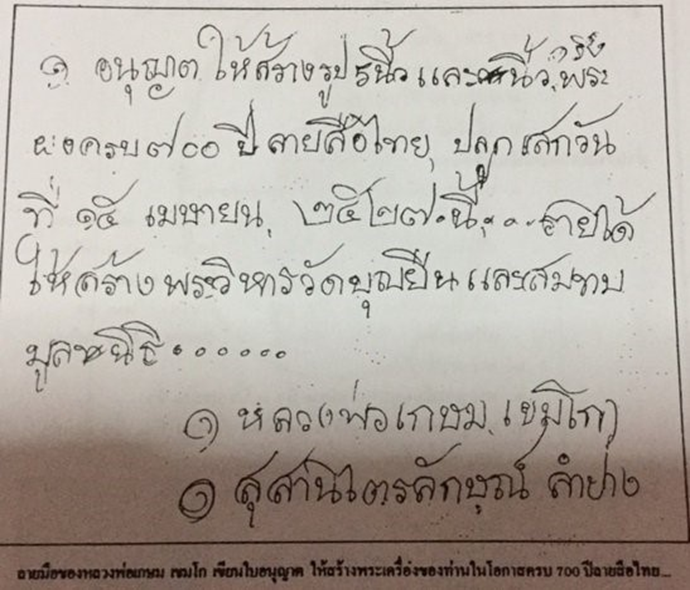 ๑ อนุญาต ให้สร้างรูปนี้ว และนี้ว, กริ่ง พระ
ผงครบ ๗๐๐ ปี ลายสือไทย, ปลุกเสกวัน
ที่ ๑๕ เมษายน, ๒๕๒๗ นี้,... รายได้
ให้สร้างพระวิหารวัดบุญยืนและสมทบ
มูลหนิธิ......
๑ หลวงพ่อเกษม, เขมโก)
๑ สุสานไตรลักษณ์ ลำปาง
ลายมือของหลวงพ่อเกษม เขมโก เขียนใบอนุญาต ให้สร้างพระเครื่องของท่านในโอกาสครบ 700 ปีลายสือไทย...